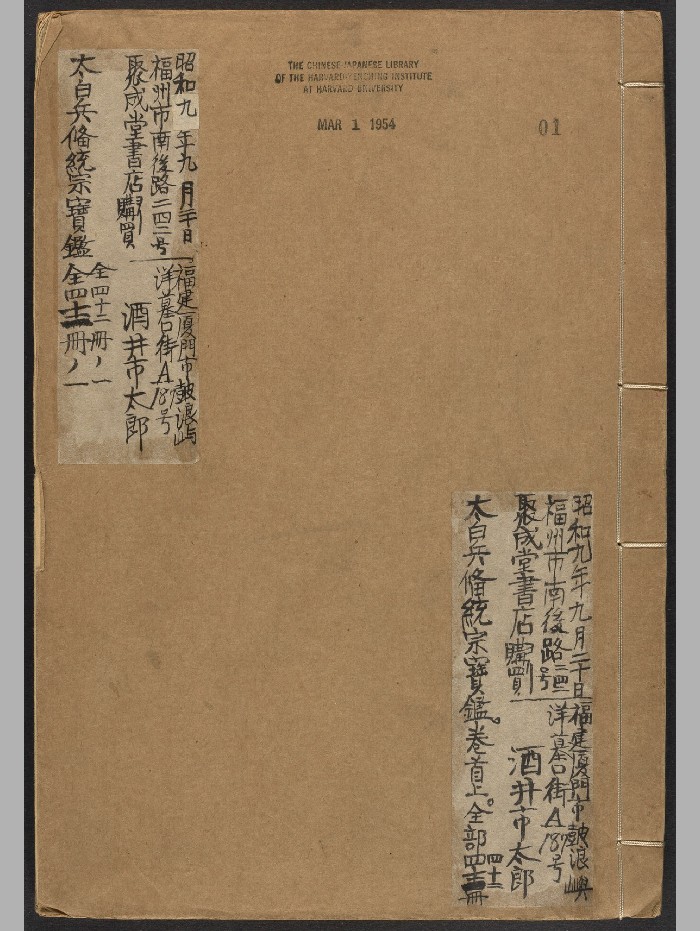 THE CHINESE-JAPANESE LIBRARY
OF THE HARVARD-YENCHING INSTITUTE
AT HARVARD UNIVERSITY
MAR 1 1954
01
昭和九年九月二十日
福州市南後路二四二号
聚成堂書店ヨリ購買
福建厦門市鼓浪嶼
洋墓口街A187号
酒井市太郎
太白兵備統宗寶鑑
全四十二冊ノ一
全四十二冊ノ一
昭和九年九月二十日
福州市南後路二四二号
聚成堂書店ヨリ購買
福建厦門市鼓浪嶼
洋墓口街A187号
酒井市太郎
太白兵備統宗寶鑑。卷首上。全部四十二冊